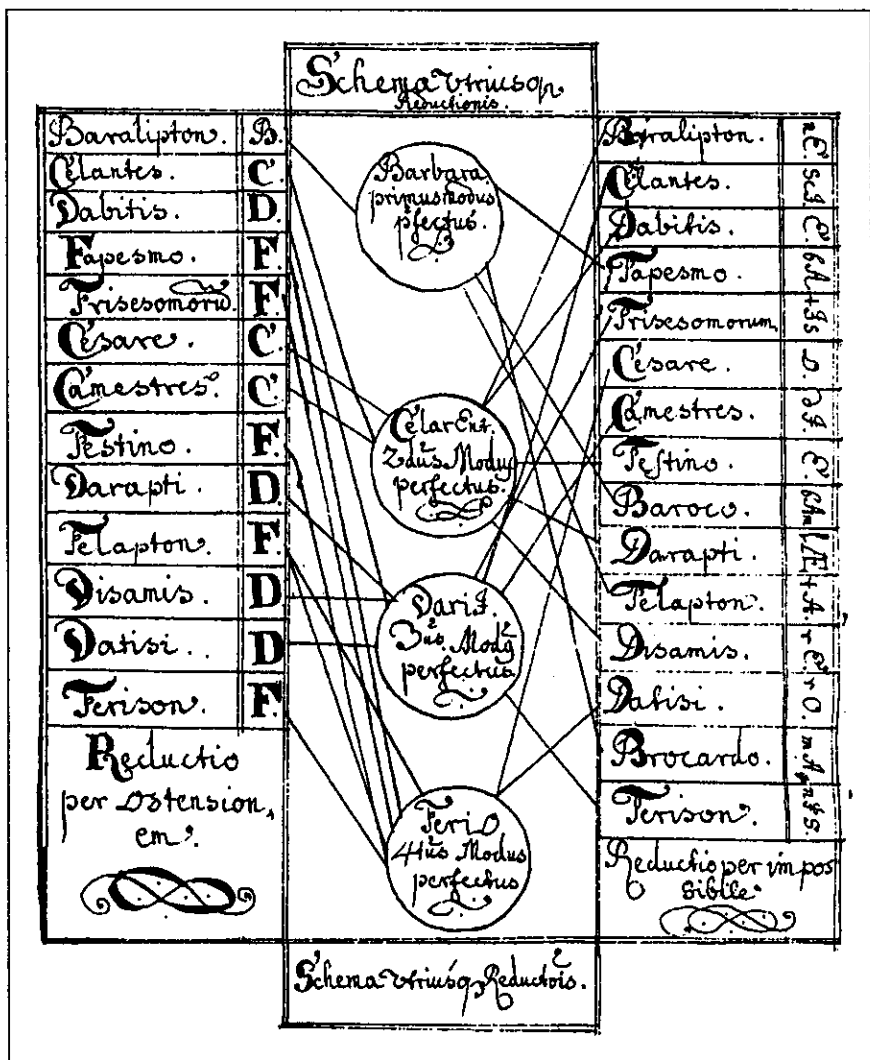 Schema Vtriusq,
Reductionis.
Baralipton. B.
Celantes. C.
Dabitis. D.
Fapesmo. F.
Frisesomorũ. F.
Cesare. C.
Camestres. C.
Festino. F.
Darapti. D.
Felapton. F.
Disamis. D
Datisi. D
Ferison. F.
Reductio
per Ostension,
em.
Barbara
primus modus
pfectus
CelarEnt.
2dus Modus
perfectus.
DariI.
3us. Modq
perfectus
FeriO
4tus Modus
perfectus
Baralipton. nE.
Celantes. ScI.
Dabitis. E.
Fapesmo. bA
Frisesomorum +Is
Cesare. O.
Camestres. dI.
Festino. E.
Baroco.
Darapti.
Felapton. +A.
Disamis. rE
Datisi. rO.
Brocardo. m.A
Ferison.
Reductio per impos
sibile
Schema Vtriusq, Reductois.